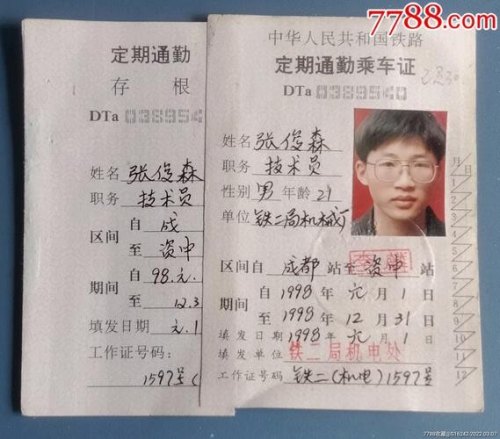 7788.com
定期通勤
存根
DTa 0389540
姓名 张俊森
职务 技术员
自 成
区间
至 资中
自 98.元.
期间
至 12.3
填发日期 元.1
工作证号码：
1597号(
中华人民共和国铁路
定期通勤乘车证
DTa 0389540
姓名 张俊森
职务 技术员
性别 男 年龄 21
单位 铁二局机械厂
区间自 成都 站至 资中 站
自 1998 年 元 月 1 日
期间
至 1998 年 12 月 31 日
填发日期 1998 年 元 月 1 日
填发单位 铁二局机电处
工作证号码：铁二(机电)1597号
月
月
1
2
3
4
5
6
7
8
9
10
11
12